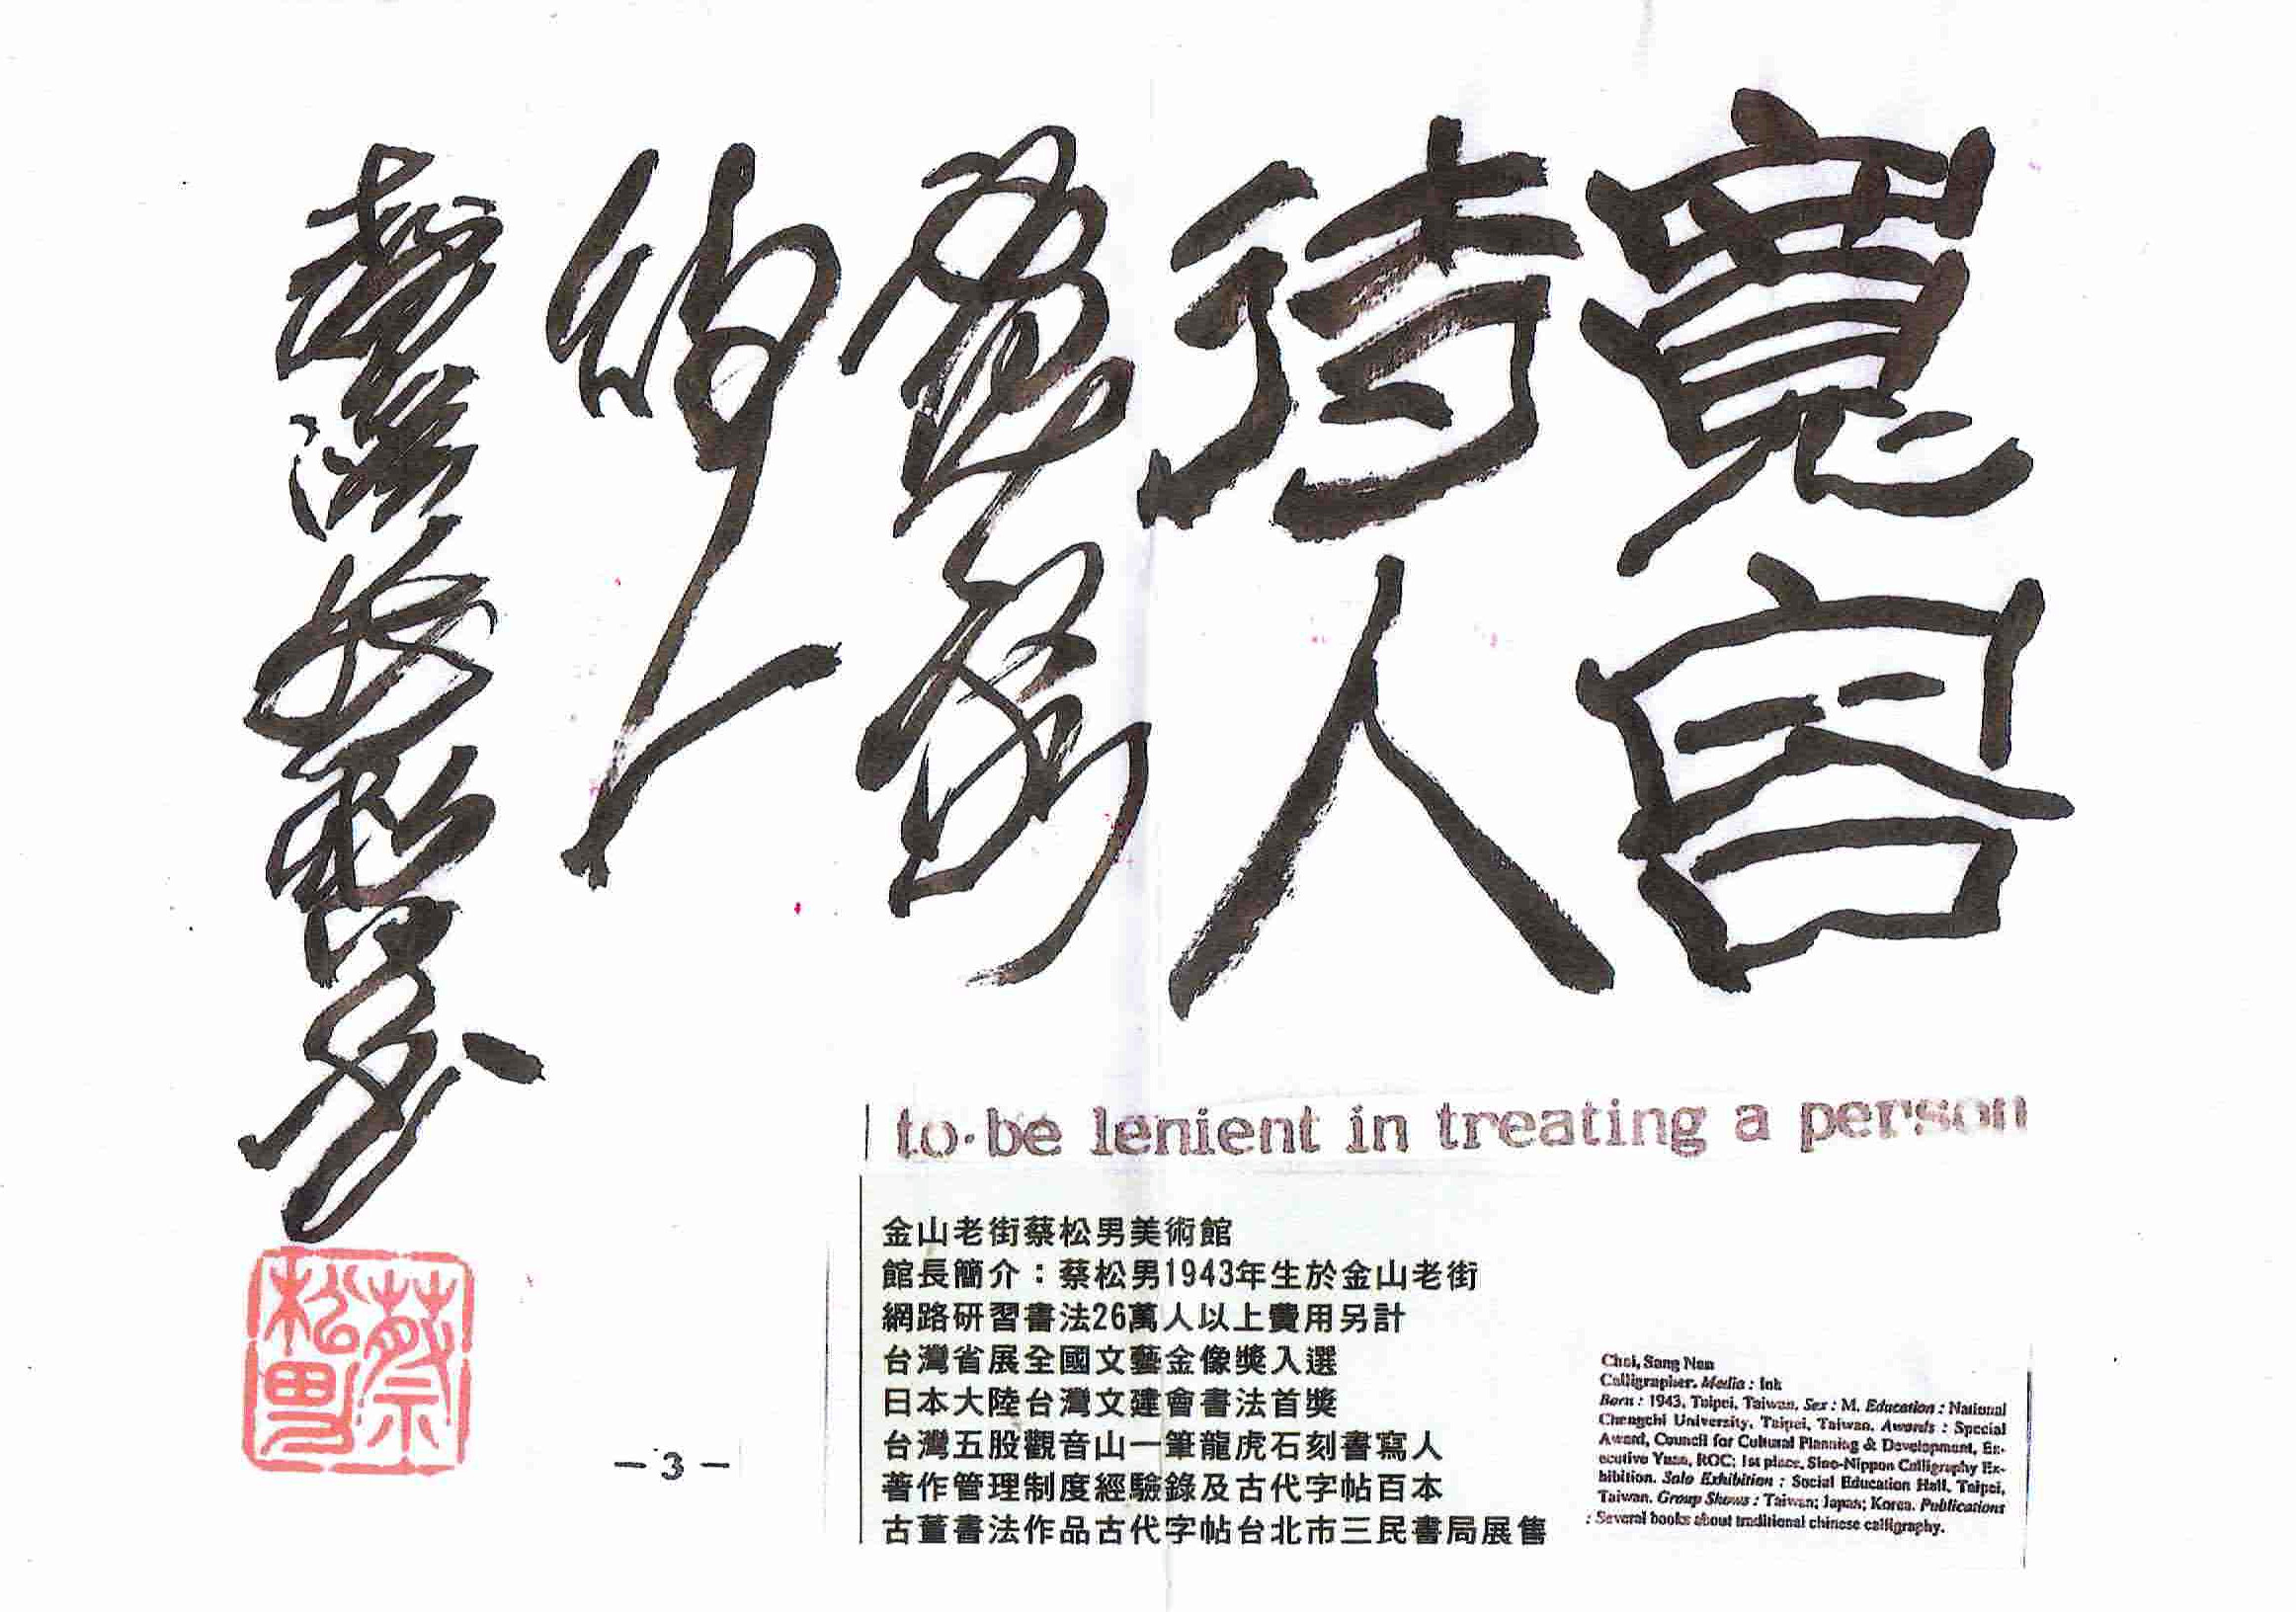 寬容
待人
to be lenient in treating a person
金山老街蔡松男美術館
館長簡介：蔡松男1943年生於金山老街
網路研習書法26萬人以上費用另計
台灣省展全國文藝金像獎入選
日本大陸台灣文建會書法首獎
台灣五股觀音山一筆龍虎石刻書寫人
著作管理制度經驗錄及古代字帖百本
古董書法作品古代字帖台北市三民書局展售
Chai, Sang Nan
Calligrapher. Media : Ink
Born : 1943, Taipei, Taiwan. Sex : M. Education : National
Chengchi University, Taipei, Taiwan. Awards : Special
Award, Council for Cultural Planning & Development, Ex-
ecutive Yuan, ROC; 1st place, Sino-Nippon Calligraphy Ex-
hibition. Solo Exhibition : Social Education Hall, Taipei,
Taiwan. Group Shows : Taiwan; Japan; Korea. Publications
: Several books about traditional chinese calligraphy.
蔡松男
— 3 —